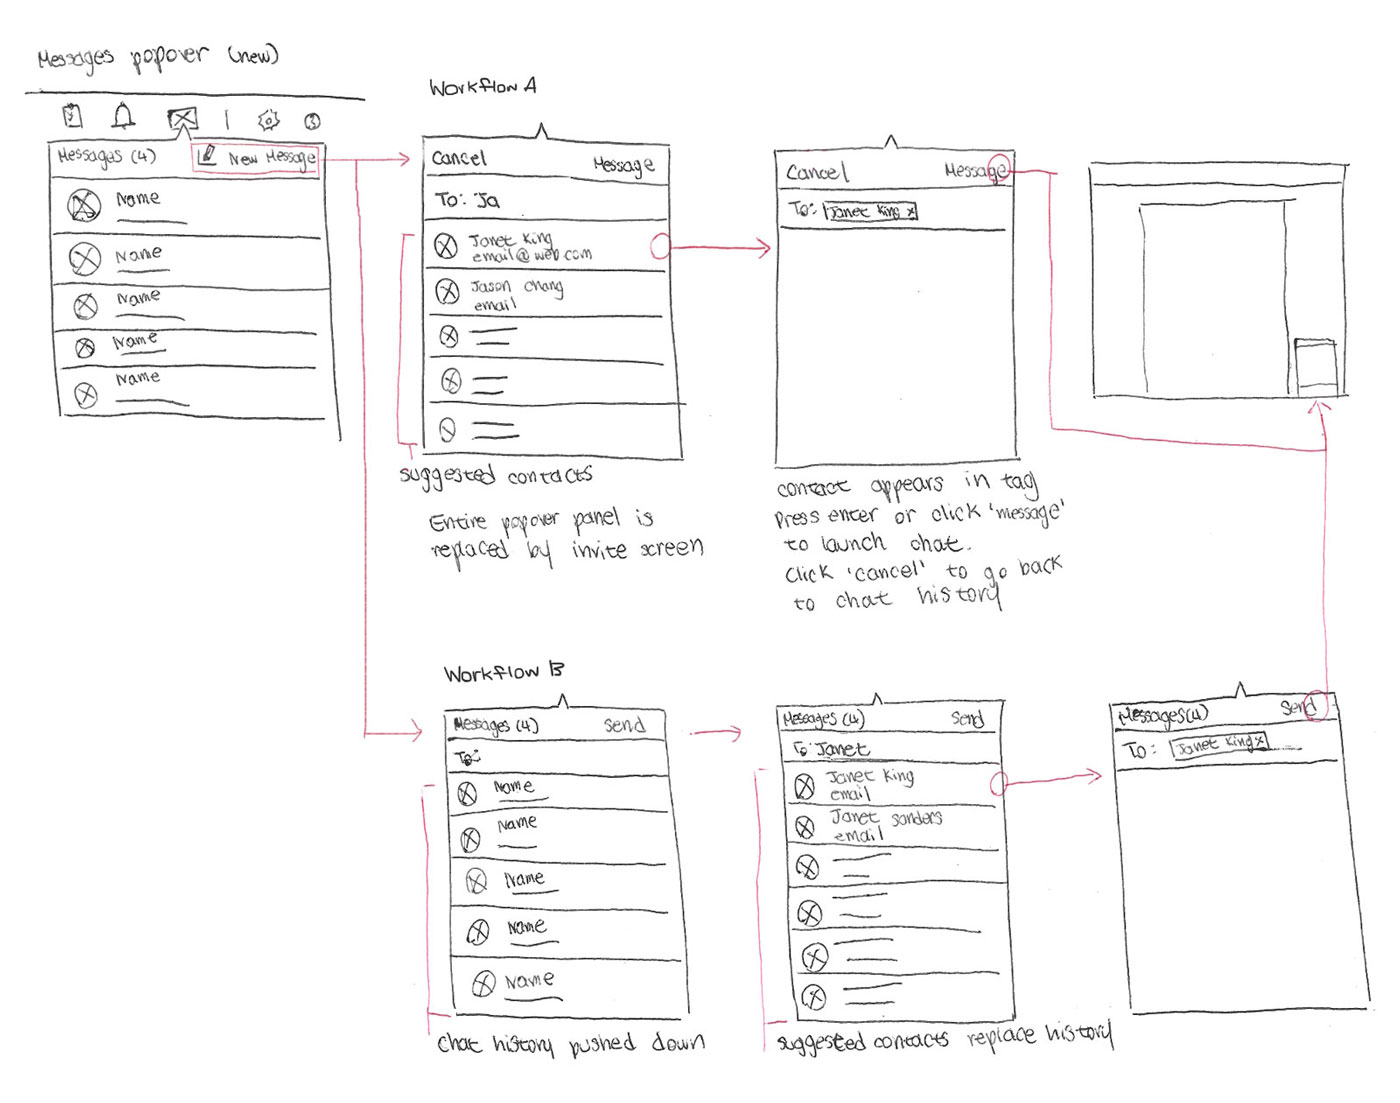 Messages popover (new)
Messages (4) New Message
Name
Name
Name
Name
Name
Workflow A
Cancel Message
To: Ja
Janet King
email@web.com
Jason chang
email
suggested contacts
Entire popover panel is
replaced by invite screen
Cancel Message
To: Janet King x
contact appears in tag
Press enter or click 'message'
to launch chat.
click 'cancel' to go back
to chat history
Workflow B
Messages (4) Send
To:
Name
Name
Name
Name
Name
chat history pushed down
Messages (4) Send
To: Janet
Janet King
email
Janet sanders
email
suggested contacts replace history
Messages (4) Send
To: Janet King x